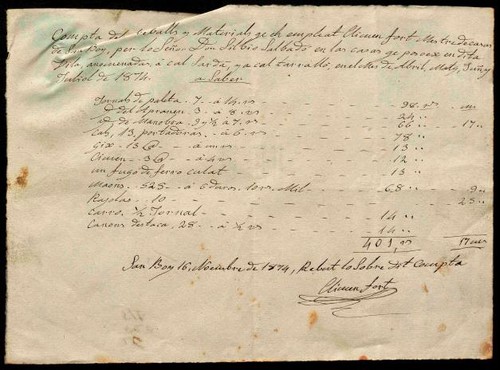 Compta del treballs y Materials qe ha empleat Climen fort Mestre de casas
de San Boy, per lo Señor Don Silvio Salbado en las casas qe posex en dita
Vila, anomenadas, á cal Jardá, y a cal tarralló, en el mes de Abril, Maty, Juñy
Juliol de 1874.
a Saber
Jornals de paleta. 7 - á 14. rs - 98. rs
Id. del Apranen. 3 - a 8. rs - 24 "
Id. de Manobra. 9 y ½ a 7. rs - 66 " 17 "
Cals, 13. portadoras. - á 6. rs - 78 "
Gix - 13 - á un rs - 13 "
Climen - 3 - á 4 rs - 12 "
un tugo de ferro calat - 13 "
Maons. 525 - á 6 duros. 10 rs. Mil - 68 " 9 "
Rajolas. 10 - 25 "
Carro. ½ Jornal - 14 "
Canons de taca. 28 - á ½ rs - 14 "
401, rs 17 ms
San Boy 16, Nociembre de 1874, Rebut lo Sobre dit Compta
Climen fort